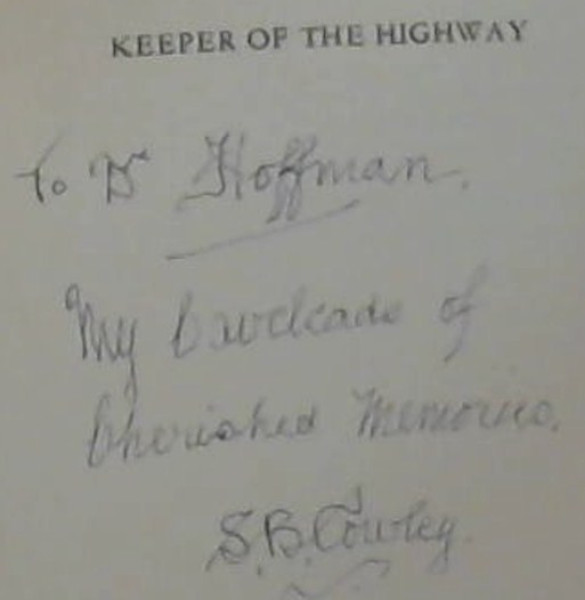 KEEPER OF THE HIGHWAY
To Dr Hoffman.
My Cavelcade of
Cherished Memories.
S.B. Cowley